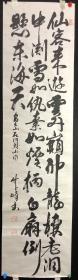 仙客来遊雲外巓神龍栖老洞
中渕雪如紈素煙如柄白扇倒
懸東海天